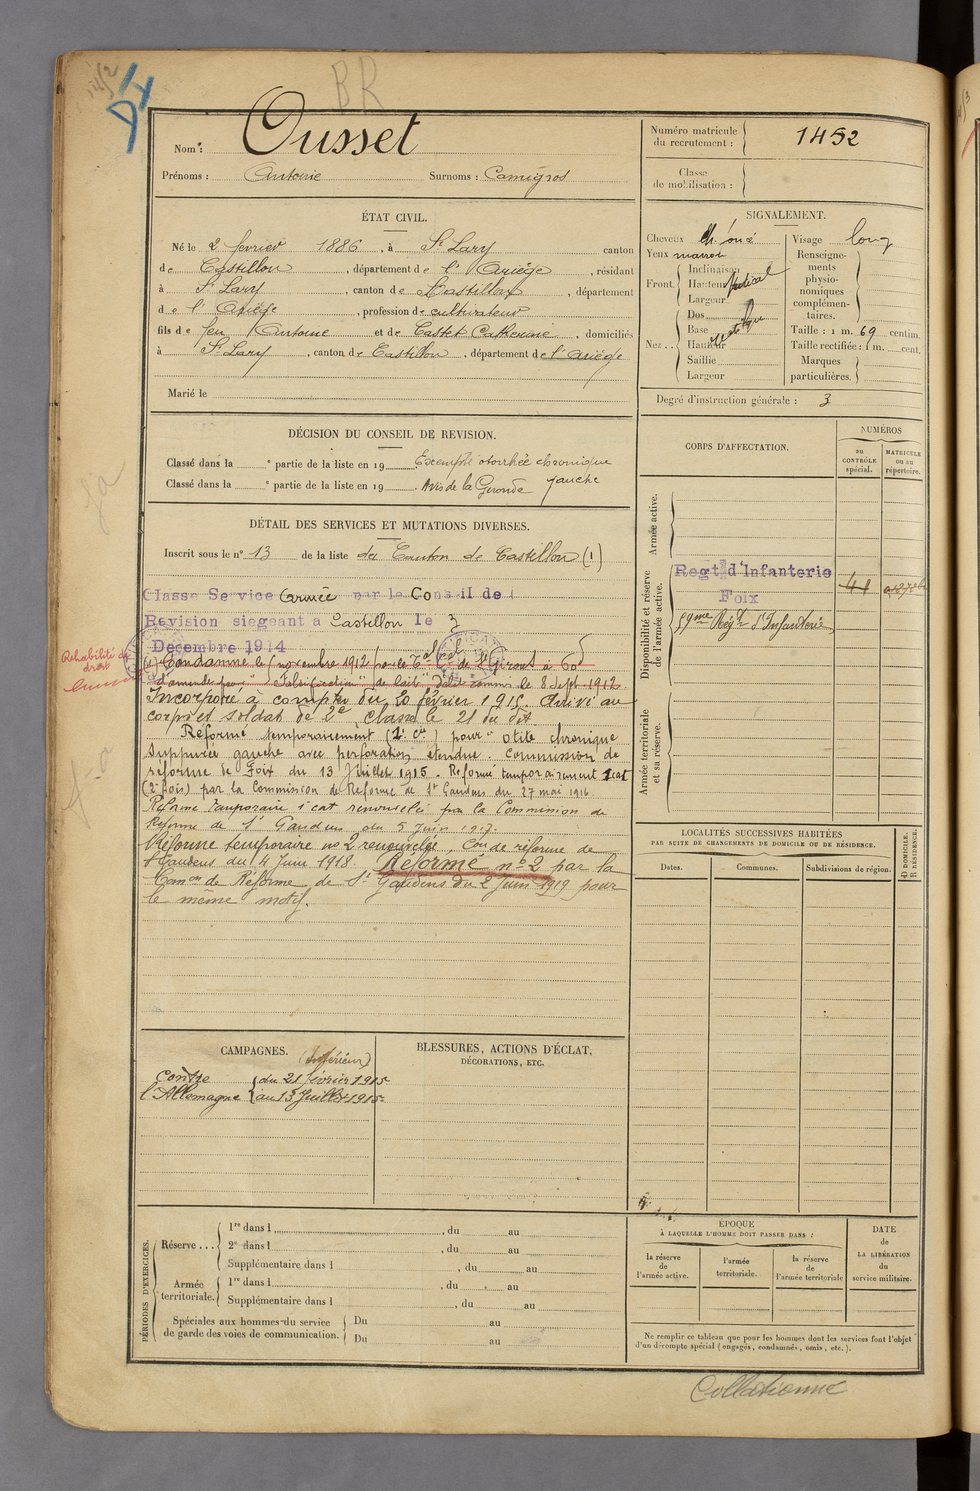 BR
Nom : Ousset
Prénoms : Antoine Surnoms : Camigros
Numéro matricule du recrutement : 1452
Classe de mobilisation :
ÉTAT CIVIL.
Né le 2 février 1886, à St Lary canton
de Castillon, département de l'Ariège, résidant
à St Lary, canton de Castillon, département
de l'Ariège, profession de cultivateur
fils de feu Antoine et de Castet Catherine, domiciliés
à St Lary, canton de Castillon, département de l'Ariège
Marié le
SIGNALEMENT.
Cheveux ch. foncé
Yeux marron
Front. Inclinaison
Hauteur vertical
Largeur
Nez.. Dos
Base
Hauteur
Saillie
Largeur
Visage long
Renseignements physionomiques complémentaires.
Taille : 1 m. 69 centim.
Taille rectifiée : 1 m. cent.
Marques particulières.
Degré d'instruction générale : 3
DÉCISION DU CONSEIL DE REVISION.
Classé dans la e partie de la liste en 19 Exempté otorrhée chronique
Classé dans la e partie de la liste en 19 . Avis de la Gironde gauche
DÉTAIL DES SERVICES ET MUTATIONS DIVERSES.
Inscrit sous le n° 13 de la liste du Canton de Castillon (1)
Classé Service armé par le Conseil de
Revision siegeant a Castillon le 3
Decembre 1914
Réhabilité de
droit
(1) Condamné le novembre 1912 par le Tal Cel de St Girons à 60
d'amende pour "Falsification de lait" délit commis le 8 Sept. 1912.
Incorporé à compter du 20 février 1915. Arrivé au
corps et soldat de 2e classe le 21 du dit
Réformé temporairement (1e cie) pour "otite chronique
suppurée gauche avec perforation étendue. Commission de
réforme de Foix du 13 Juillet 1915. Réformé temporairement 1 cat
(2e fois) par la Commission de Réforme de St Gaudens du 27 mai 1916.
Réforme temporaire 1e cat renouvelée par la Commission de
Réforme de St Gaudens du 5 Juin 1917.
Réforme temporaire no 2 renouvelée, Con de réforme de
St Gaudens du 4 Juin 1918. Réformé n° 2 par la
Comon de Réforme de St Gaudens du 2 Juin 1919 pour
le même motif.
CORPS D'AFFECTATION.
NUMÉROS
au CONTRÔLE spécial.
MATRICULE ou au répertoire.
Armée active.
Disponibilité et réserve de l'armée active.
Regt d'Infanterie
Foix
59me Régt d'Infanterie
Armée territoriale et sa réserve.
LOCALITÉS SUCCESSIVES HABITÉES
PAR SUITE DE CHANGEMENTS DE DOMICILE OU DE RÉSIDENCE.
Dates.
Communes.
Subdivisions de région.
D DOMICILE.
R RÉSIDENCE.
CAMPAGNES.
(Intérieur)
Contre du 21 février 1915
l'Allemagne au 13 Juillet 1915
BLESSURES, ACTIONS D'ÉCLAT,
DÉCORATIONS, ETC.
PÉRIODES D'EXERCICES.
Réserve...
1re dans l , du au
2e dans l , du au
Supplémentaire dans l , du au
Armée territoriale.
1re dans l , du au
Supplémentaire dans l , du au
Spéciales aux hommes du service de garde des voies de communication.
Du au
Du au
ÉPOQUE
À LAQUELLE L'HOMME DOIT PASSER DANS :
la réserve de l'armée active.
l'armée territoriale.
la réserve de l'armée territoriale
DATE de LA LIBÉRATION du service militaire.
Ne remplir ce tableau que pour les hommes dont les services font l'objet
d'un décompte spécial (engagés, condamnés, omis, etc.).
Collationné